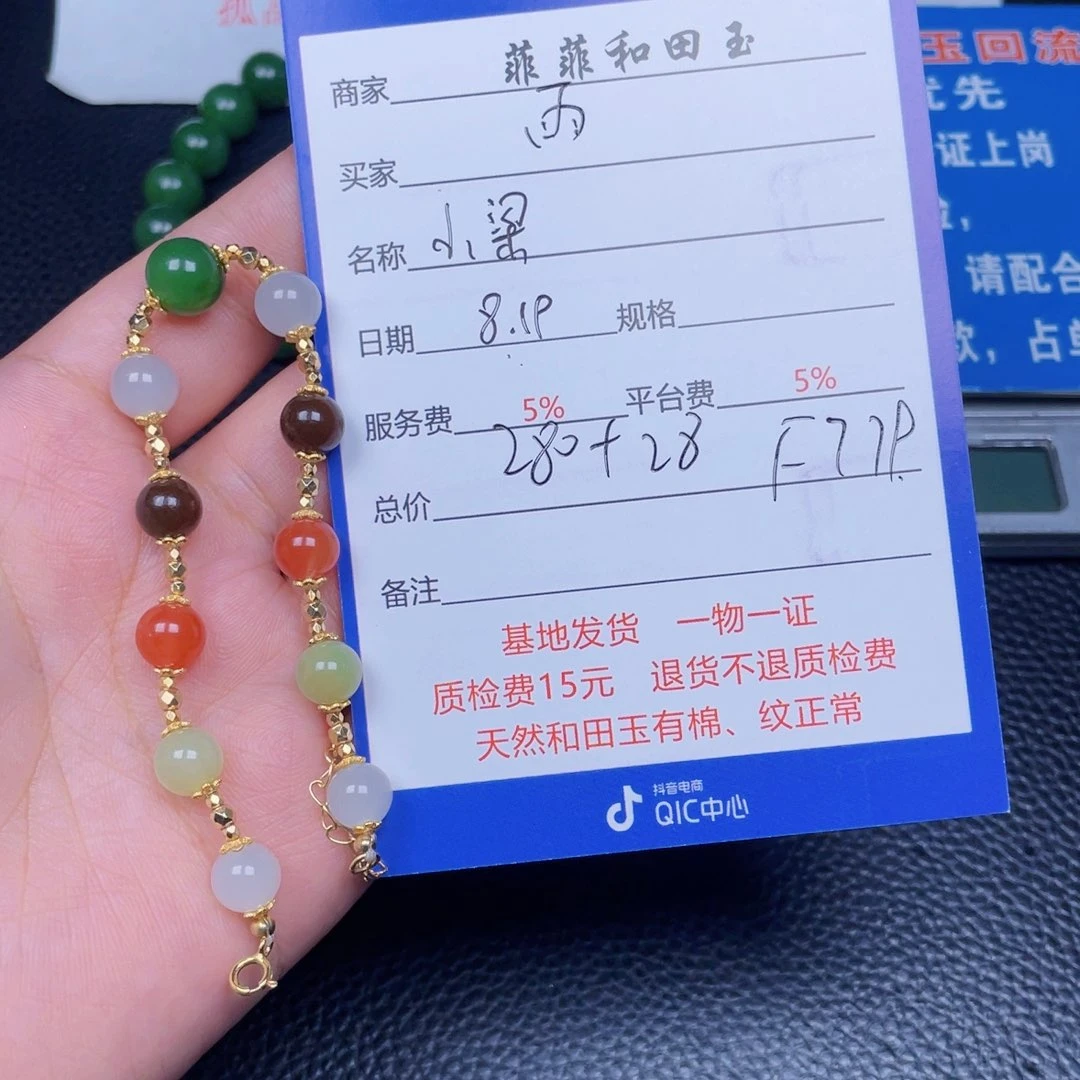 商家 菲菲和田玉
买家 雨
名称 小梁
日期 8.19 规格
服务费 5% 平台费 5%
280+28
总价
备注
基地发货 一物一证
质检费15元 退货不退质检费
天然和田玉有棉、纹正常
抖音电商
QIC中心
玉回流
优先
证上岗
请配合
款，占单